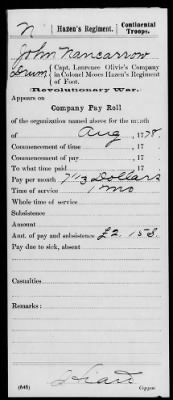 N | Hazen's Regiment. | Continental Troops.
John Nancarrow
Drum, { Capt. Laurence Olivie's Company in Colonel Moses Hazen's Regiment of Foot.
Revolutionary War.
Appears on
Company Pay Roll
of the organization named above for the month
of Aug, 1778.
Commencement of time , 17
Commencement of pay , 17
To what time paid , 17
Pay per month 7 1/3 Dollars
Time of service 1 mo
Whole time of service
Subsistence
Amount
Amt. of pay and subsistence £2. 15 s.
Pay due to sick, absent
Casualties
Remarks:
(545) Copyist.